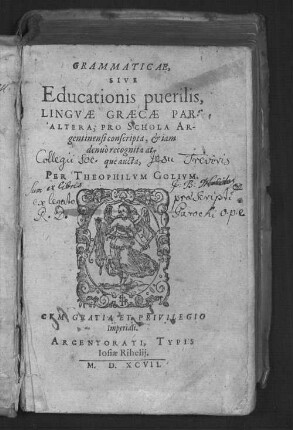 GRAMMATICAE,
SIVE
Educationis puerilis,
LINGVÆ GRÆCÆ PARS
ALTERA; PRO SCHOLA AR-
gentinensi conscripta, & iam
denuò recognita at-
Collegii Soc que aucta, Jesu Treviris
PER THEOPHILVM GOLIVM.
ex libris
ex legato
R. D.
CVM GRATIA ET PRIVILEGIO
Imperiali.
ARGENTORATI, TYPIS
Iosiæ Rihelij.
M. D. XCVII.